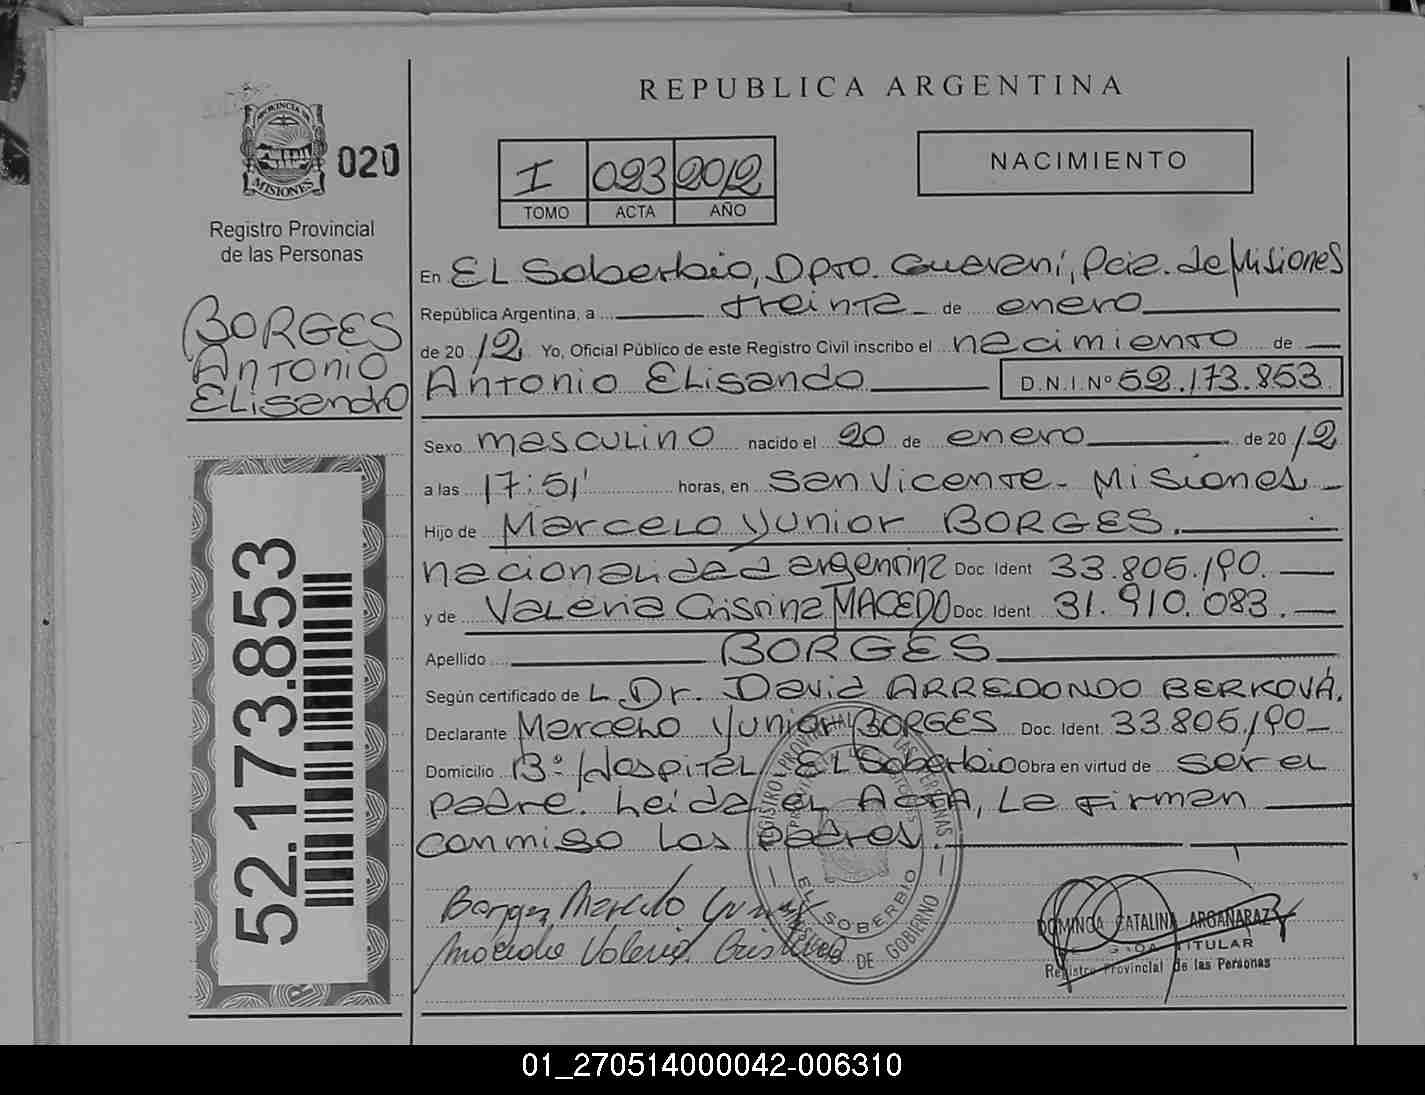 REPUBLICA ARGENTINA
PROVINCIA DE
MISIONES
020
Registro Provincial
de las Personas
I 023 2012
TOMO ACTA AÑO
NACIMIENTO
BORGES
Antonio
Elisandro
52.173.853
En El Soberbio, Dpto. Guaraní, Pcia. de Misiones
República Argentina, a treinta de enero
de 2012 Yo, Oficial Público de este Registro Civil inscribo el nacimiento de
Antonio Elisando D.N.I. Nº 52.173.853
Sexo masculino nacido el 20 de enero de 2012
a las 17:51' horas, en San Vicente - Misiones -
Hijo de Marcelo Yunior BORGES.
nacionalidad argentina Doc. Ident 33.806.190.
y de Valeria Cristina MACEDO Doc. Ident. 31.910.083.
Apellido BORGES
Según certificado de L Dr. David ARREDONDO BERKOVÁ.
Declarante Marcelo Yunior BORGES Doc. Ident. 33.806.190
Domicilio Bº Hospital El Soberbio Obra en virtud de ser el
padre. Leída el Acta, La firman
conmigo los padres.
Borges Marcelo Yunior
Macedo Valeria Cristina
REGISTRO PROVINCIAL DE LAS PERSONAS
EL SOBERBIO
MINISTERIO DE GOBIERNO
DOMINGA CATALINA ARGAÑARAZ
TITULAR
Registro Provincial de las Personas
01_270514000042-006310